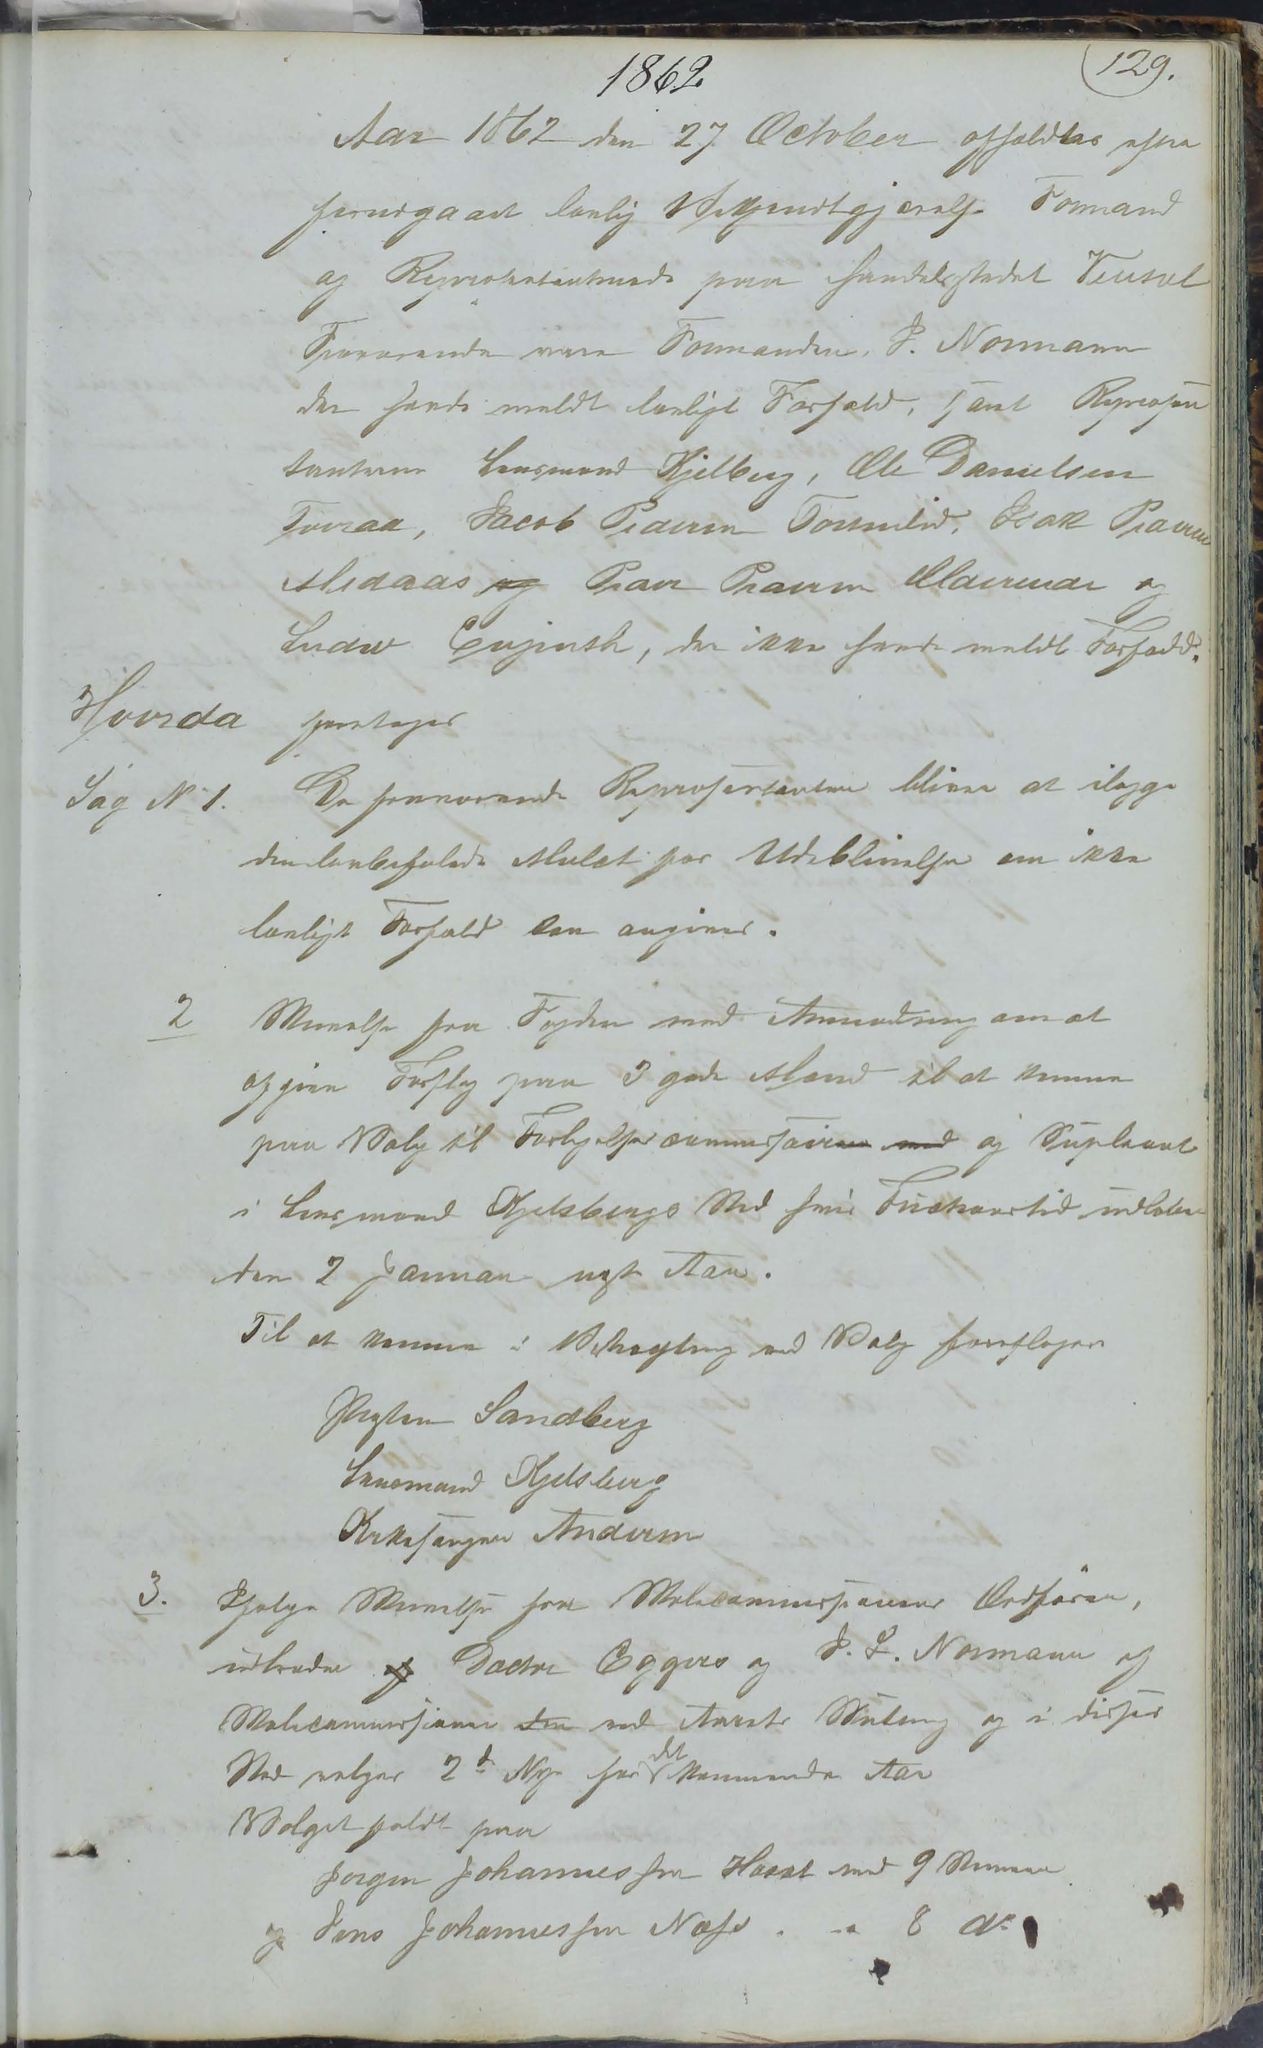 1862
129.
Aar 1862 den 27 October afholdtes efter
forudgaaet lovlig Bekjendtgjørelse Formand
og Repræsentantmøde paa Handelsstedet
Fraværende vare Formanden, J. Normann
der havde meldt lovligt Forfald, samt Repræsen
tanterne Lensmand Kjelberg, Ole Danielsen
Jacob Pedersen Isak
og Peder og
der ikke havde meldt Forfald.
Hvorda foretages
Sag N 1. De fraværende Repræsentanter bliver at ilegge
den lovbefalede Mulct for Udeblivelse om ikke
lovligt Forfald kan angives.
2 Skrivelse fra Fogden med Anmodning om at
afgive Forslag paa 3 gode Mænd til at komme
paa Valg til Forligelsescommissair og Supleant
i Lensmand Kjelsbergs Sted hvis udløber
den 2 Januar næste Aar.
Til at komme i Betragtning ved Valg foreslages
Sandberg
Lensmand Kjelsberg
Kirkesanger Andersen
3. Ifølge Skrivelse fra Skolecommissionens Ordfører,
udtræder af Doctor Eggers og J. L. Normann af
Skolecommissionen ved Aarets Slutning og i disses
Sted vælges 2de Nye for det kommende Aar
Valget faldt paa
Jørgen Johannessen med 9 Stemmer
og Jens Johannessen Næss . " 8 do